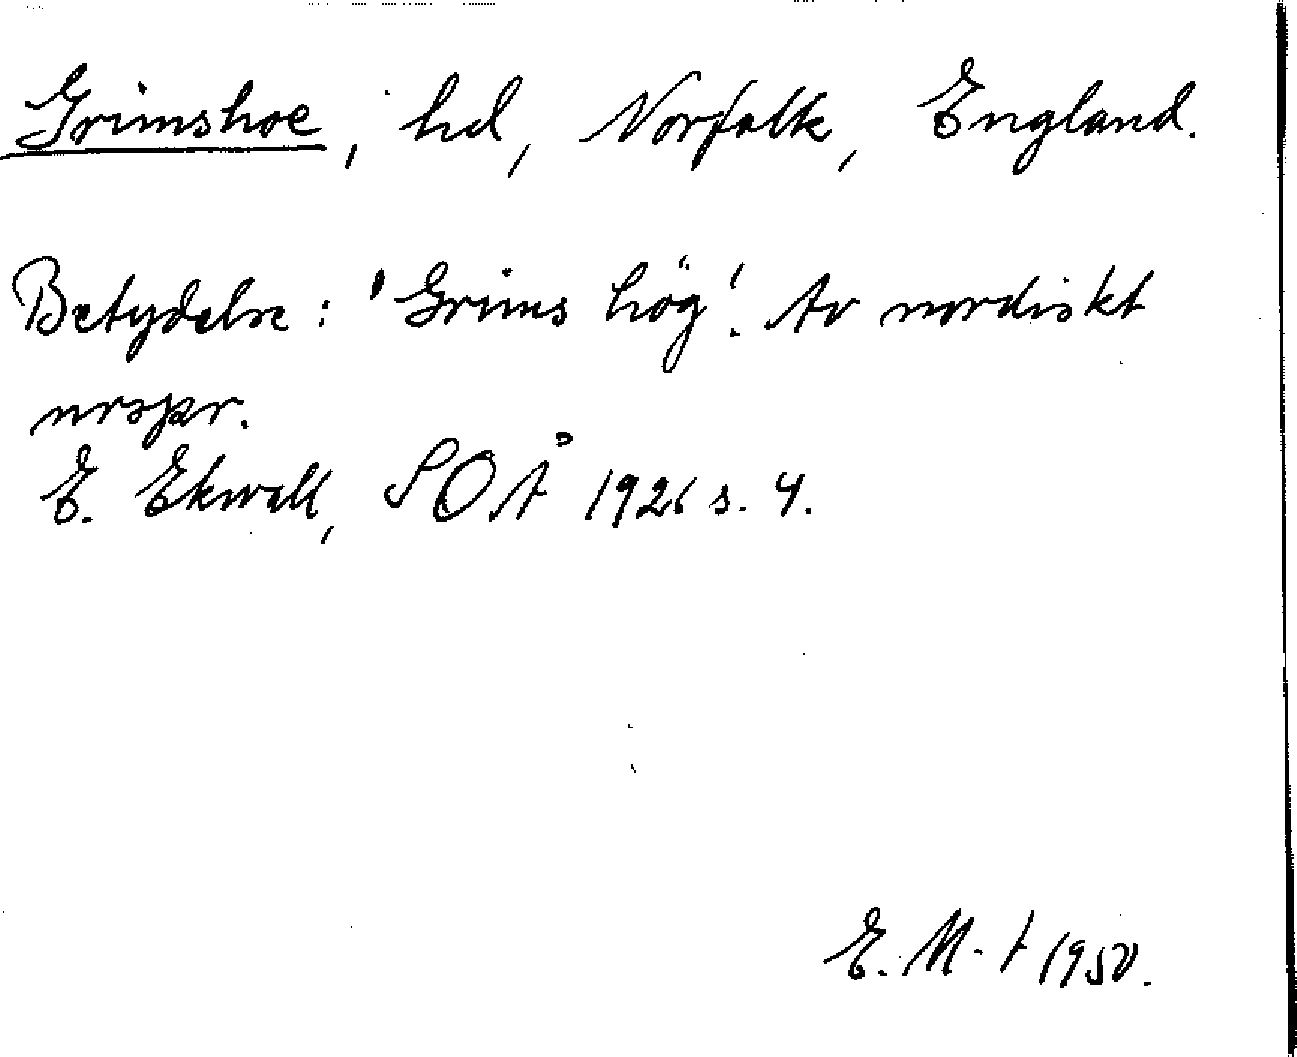 Grimshoe, hd, Norfolk, England.
Betydelse: 'Grims hög'. Av nordiskt
urspr.
E. Ekwall, SOÅ 1926 s. 4.
E. M-t 1950.